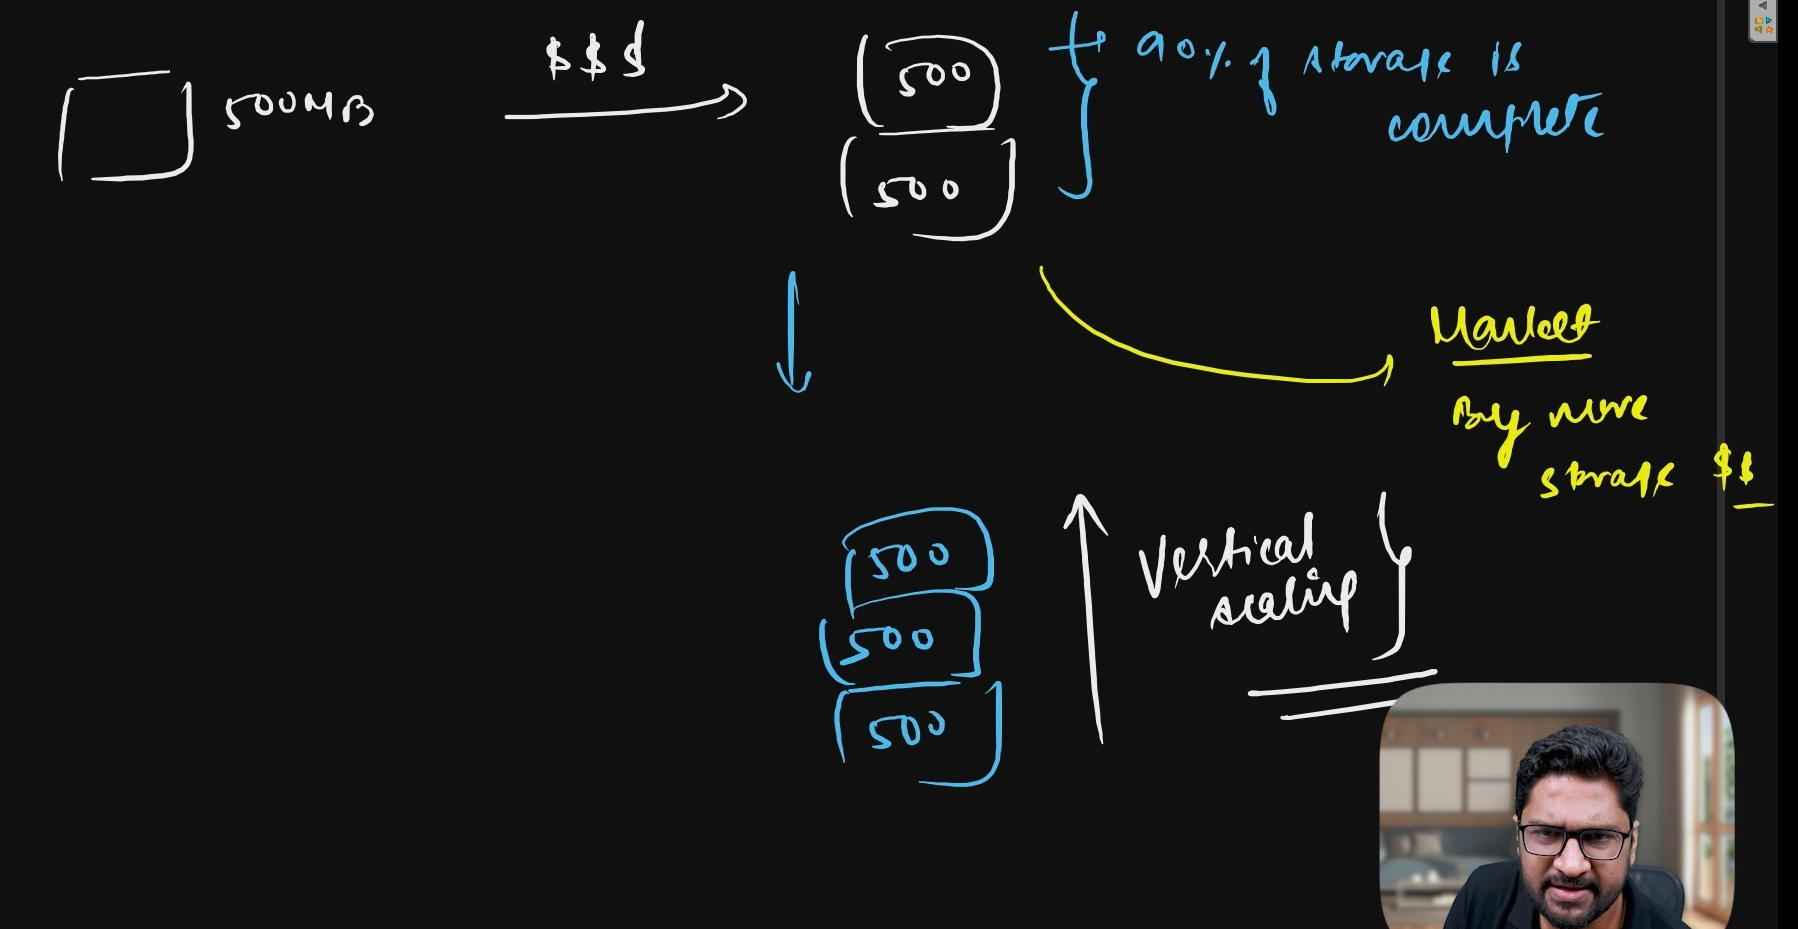 500MB
$$$
500
500
90% of storage is
complete
Market
By more
storage $$
500
500
500
Vertical
scaling